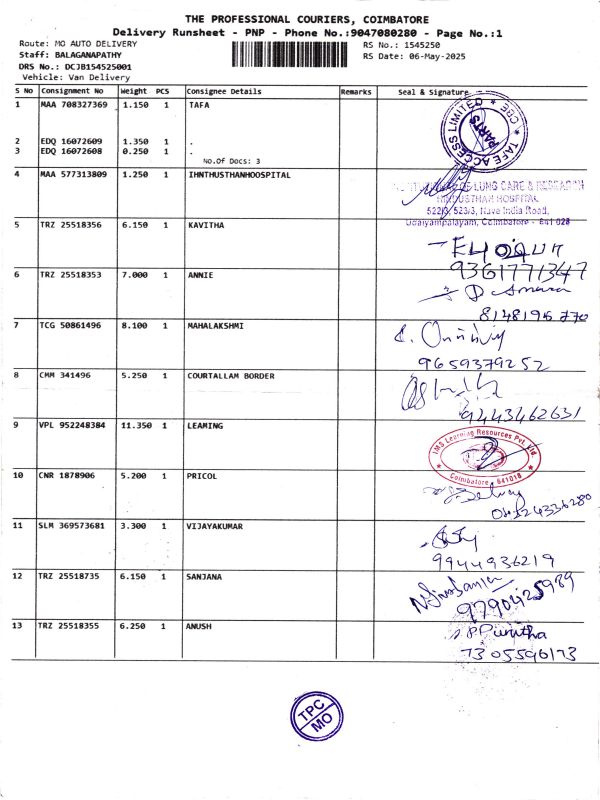 THE PROFESSIONAL COURIERS, COIMBATORE
Delivery Runsheet - PNP - Phone No.:9047080280 - Page No.:1
Route: MO AUTO DELIVERY
RS No.: 1545250
Staff: BALAGANAPATHY
RS Date: 06-May-2025
DRS No.: DCJB154525001
Vehicle: Van Delivery
S No Consignment No Weight PCS Consignee Details Remarks Seal & Signature
1 MAA 708327369 1.150 1 TAFA
TAFE ACCESS LIMITED CBE
PARTS
2 EDQ 16072609 1.350 1 .
3 EDQ 16072608 0.250 1 .
No.Of Docs: 3
4 MAA 577313809 1.250 1 IHNTHUSTHANHOOSPITAL
OF LUNG CARE & RESEARCH
HINDUSTHAN HOSPITAL
522/3, 523/3, Nava India Road,
Udaiyampalayam, Coimbatore - 641 028
5 TRZ 25518356 6.150 1 KAVITHA
9361771347
6 TRZ 25518353 7.000 1 ANNIE
8148195770
7 TCG 50861496 8.100 1 MAHALAKSHMI
9659379252
8 CMM 341496 5.250 1 COURTALLAM BORDER
9443462631
9 VPL 952248384 11.350 1 LEAMING
IMS Learning Resources Pvt. Ltd.
Coimbatore 641018
10 CNR 1878906 5.200 1 PRICOL
11 SLM 369573681 3.300 1 VIJAYAKUMAR
9944936219
12 TRZ 25518735 6.150 1 SANJANA
9790425989
13 TRZ 25518355 6.250 1 ANUSH
7305596173
TPC
MO